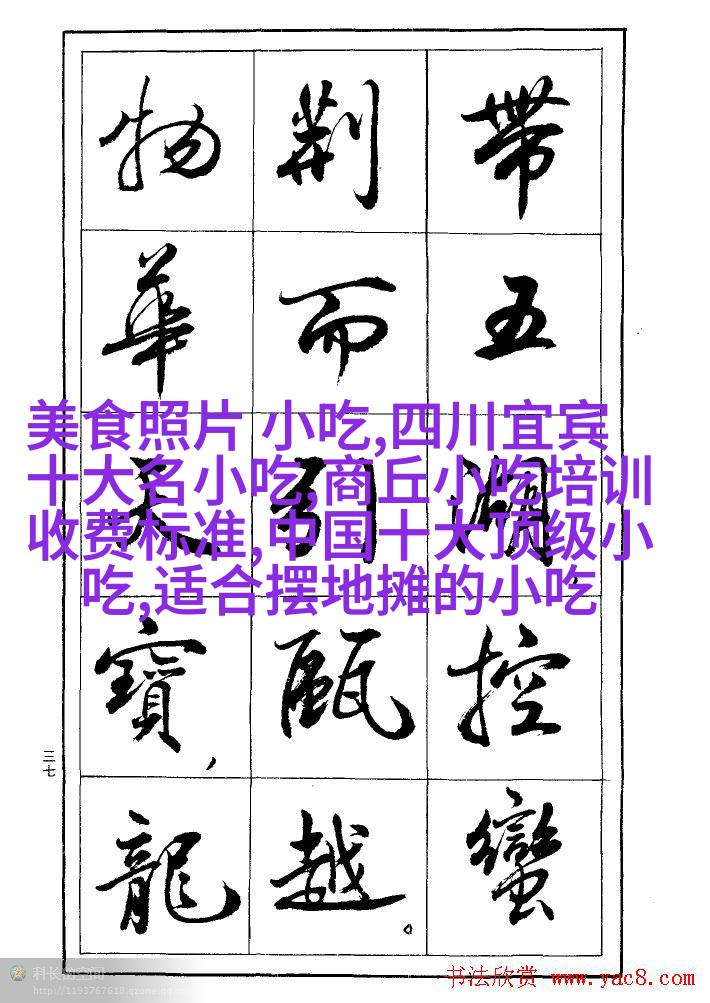 帶五湖,控蠻
荆而引甌越。
物華天寶,龍
美食照片 小吃,四川宜宾
十大名小吃,商丘小吃培训
收费标准,中国十大顶级小
吃,适合摆地摊的小吃
三七
科长的空间
书法欣赏 www.yac8.com